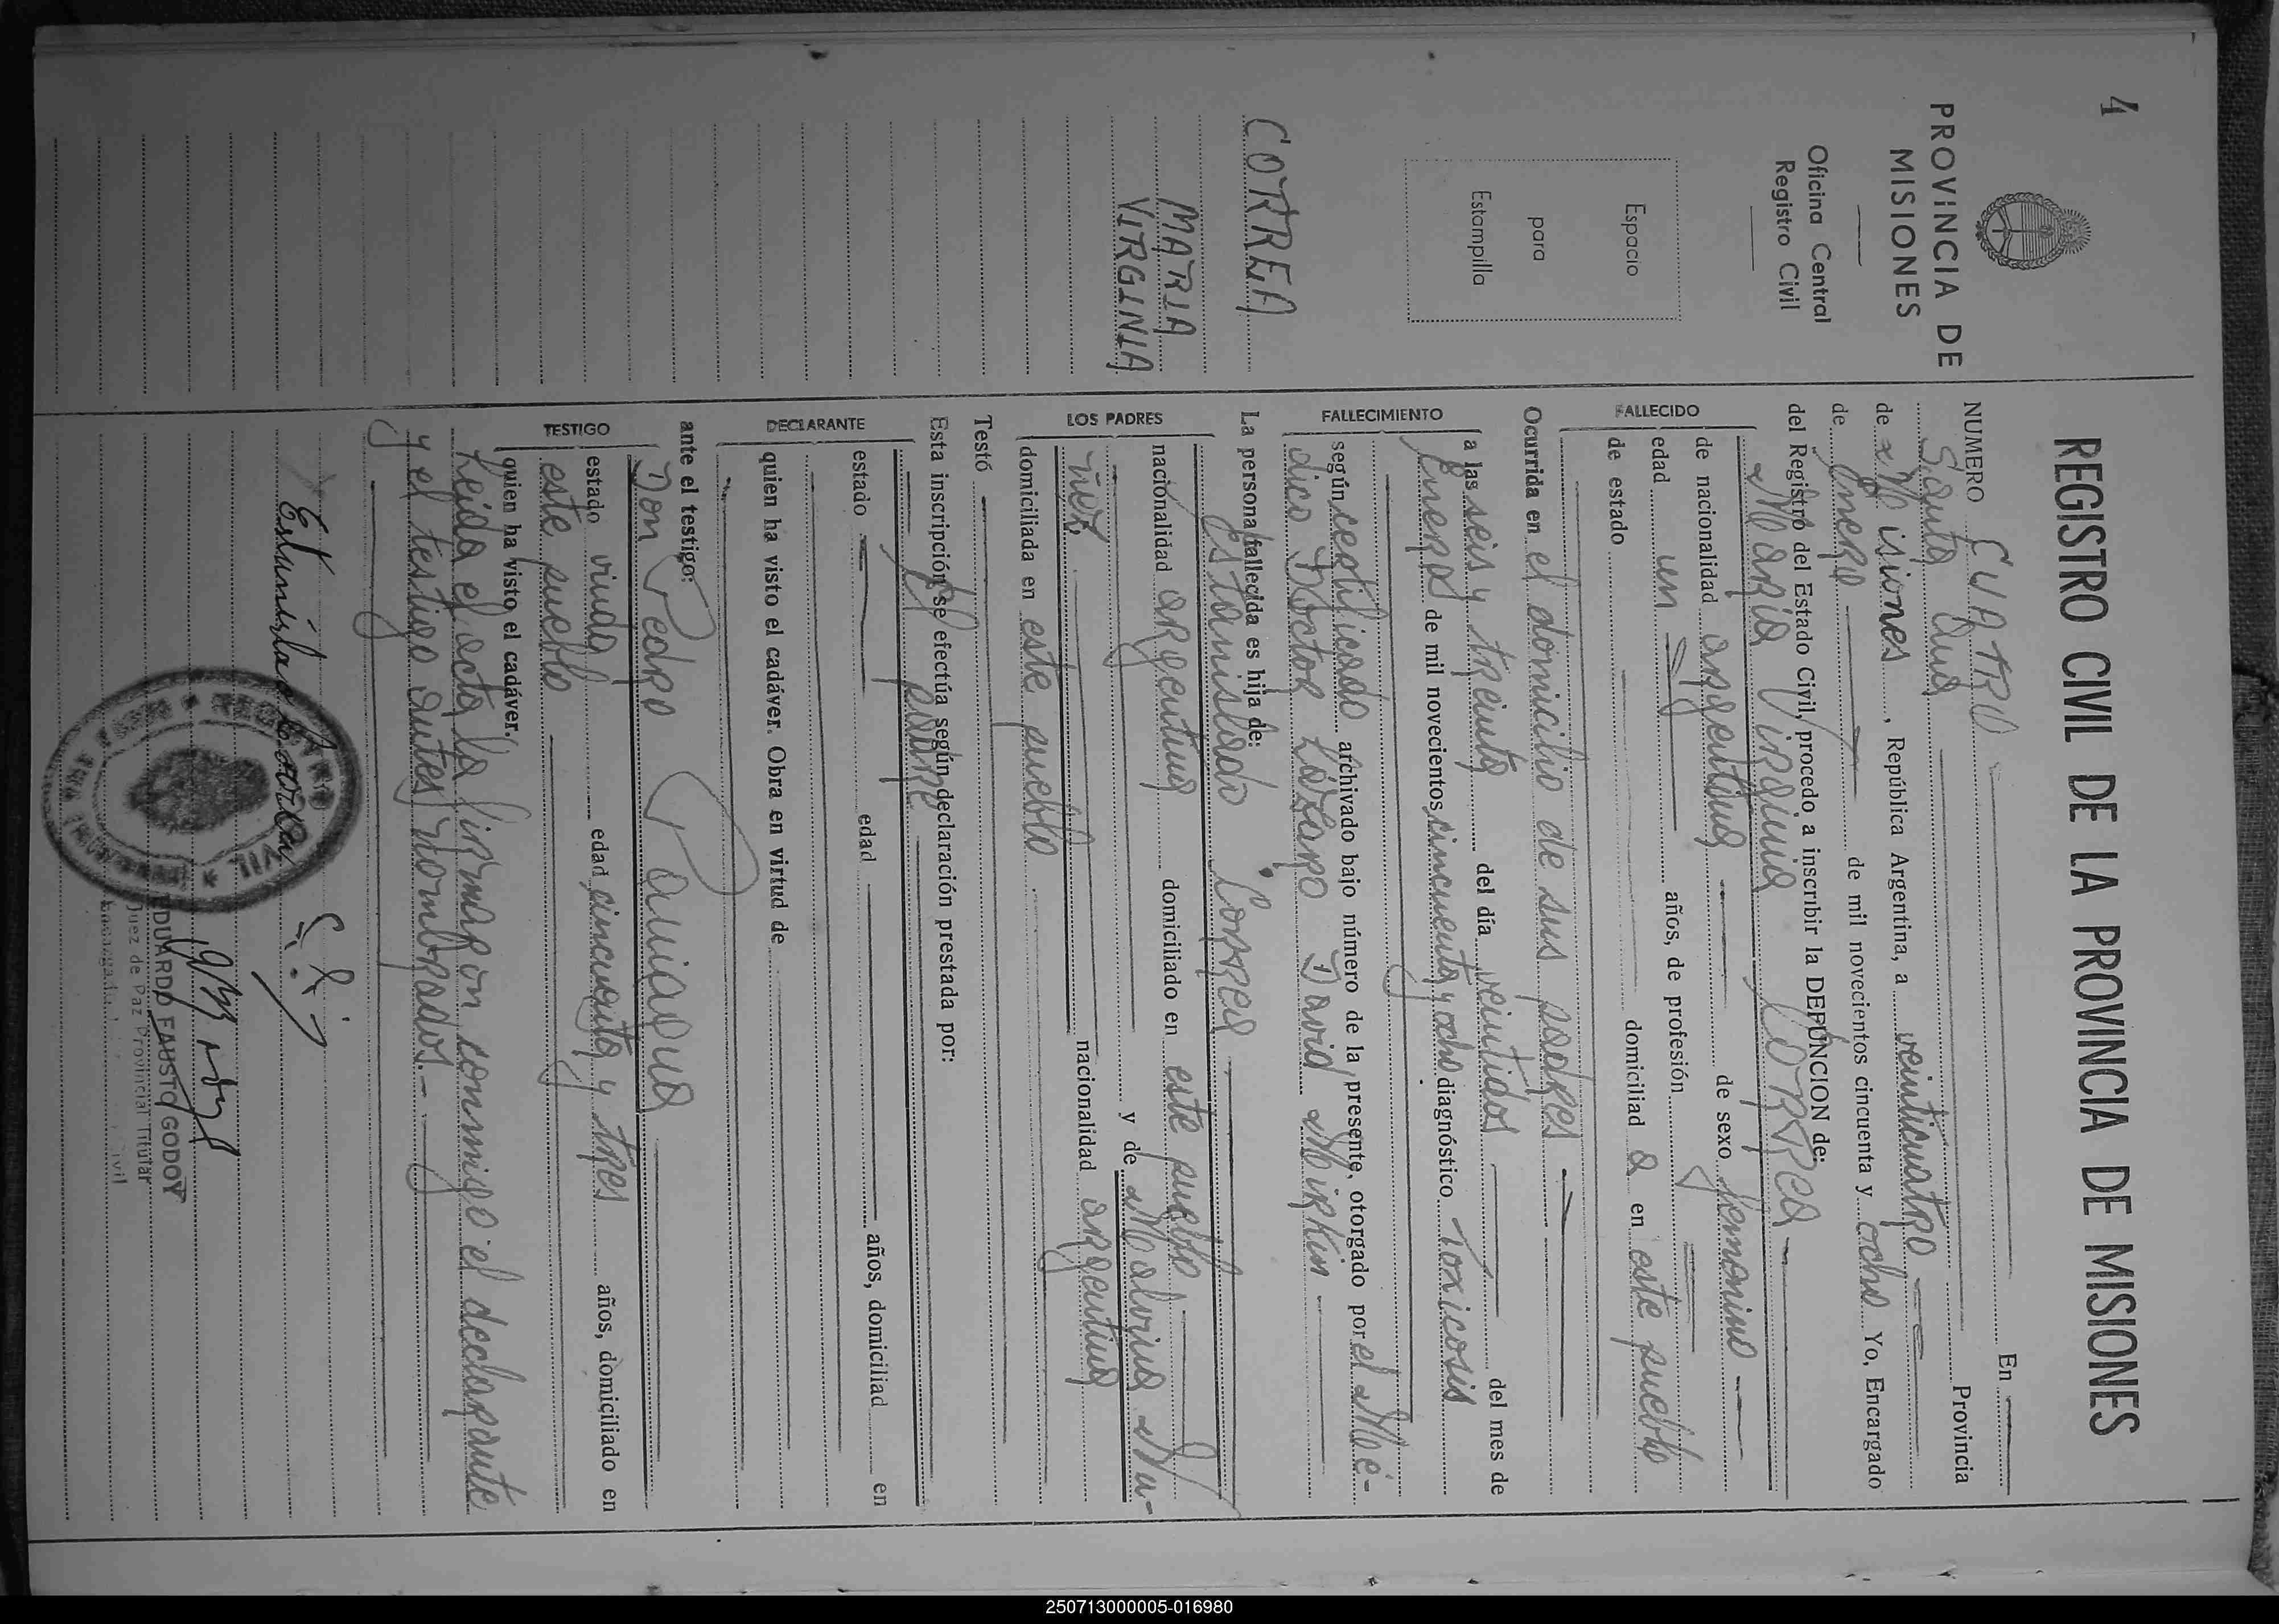 4
PROVINCIA DE
MISIONES
Oficina Central
Registro Civil
Espacio
para
Estampilla
CORREA
MARIA
VIRGINIA
REGISTRO CIVIL DE LA PROVINCIA DE MISIONES
NUMERO CUATRO En
Santa Ana Provincia
de Misiones, República Argentina, a veinticuatro
de Enero de mil novecientos cincuenta y ocho Yo, Encargado
del Registro del Estado Civil, procedo a inscribir la DEFUNCION de:
FALLECIDO
Maria Virginia CORREA
de nacionalidad argentina de sexo femenino
edad un años, de profesión
de estado domiciliad a en este pueblo
Ocurrida en el domicilio de sus padres
FALLECIMIENTO
a las seis y treinta del día veintidos del mes de
Enero de mil novecientos cincuenta y ocho diagnóstico Toxicosis
según certificado archivado bajo número de la presente, otorgado por el Mé-
dico Doctor Lázaro David Mirkin
La persona fallecida es hija de:
LOS PADRES
Estanislado Correa
nacionalidad argentina domiciliado en este pueblo
y de Malvina Nu-
ñez nacionalidad argentina
domiciliada en este pueblo
Testó
Esta inscripción se efectúa según declaración prestada por:
DECLARANTE
El padre
estado edad años, domiciliad en
quien ha visto el cadáver. Obra en virtud de
ante el testigo:
TESTIGO
Don Pedro
estado viudo edad cincuenta y tres años, domiciliado en
este pueblo
quien ha visto el cadáver.
Leida el acta la firmaron conmigo el declarante
y el testigo antes nombrados.-
Estanislao Correa
EDUARDO FAUSTO GODOY
Juez de Paz Provincial Titular
250713000005-016980